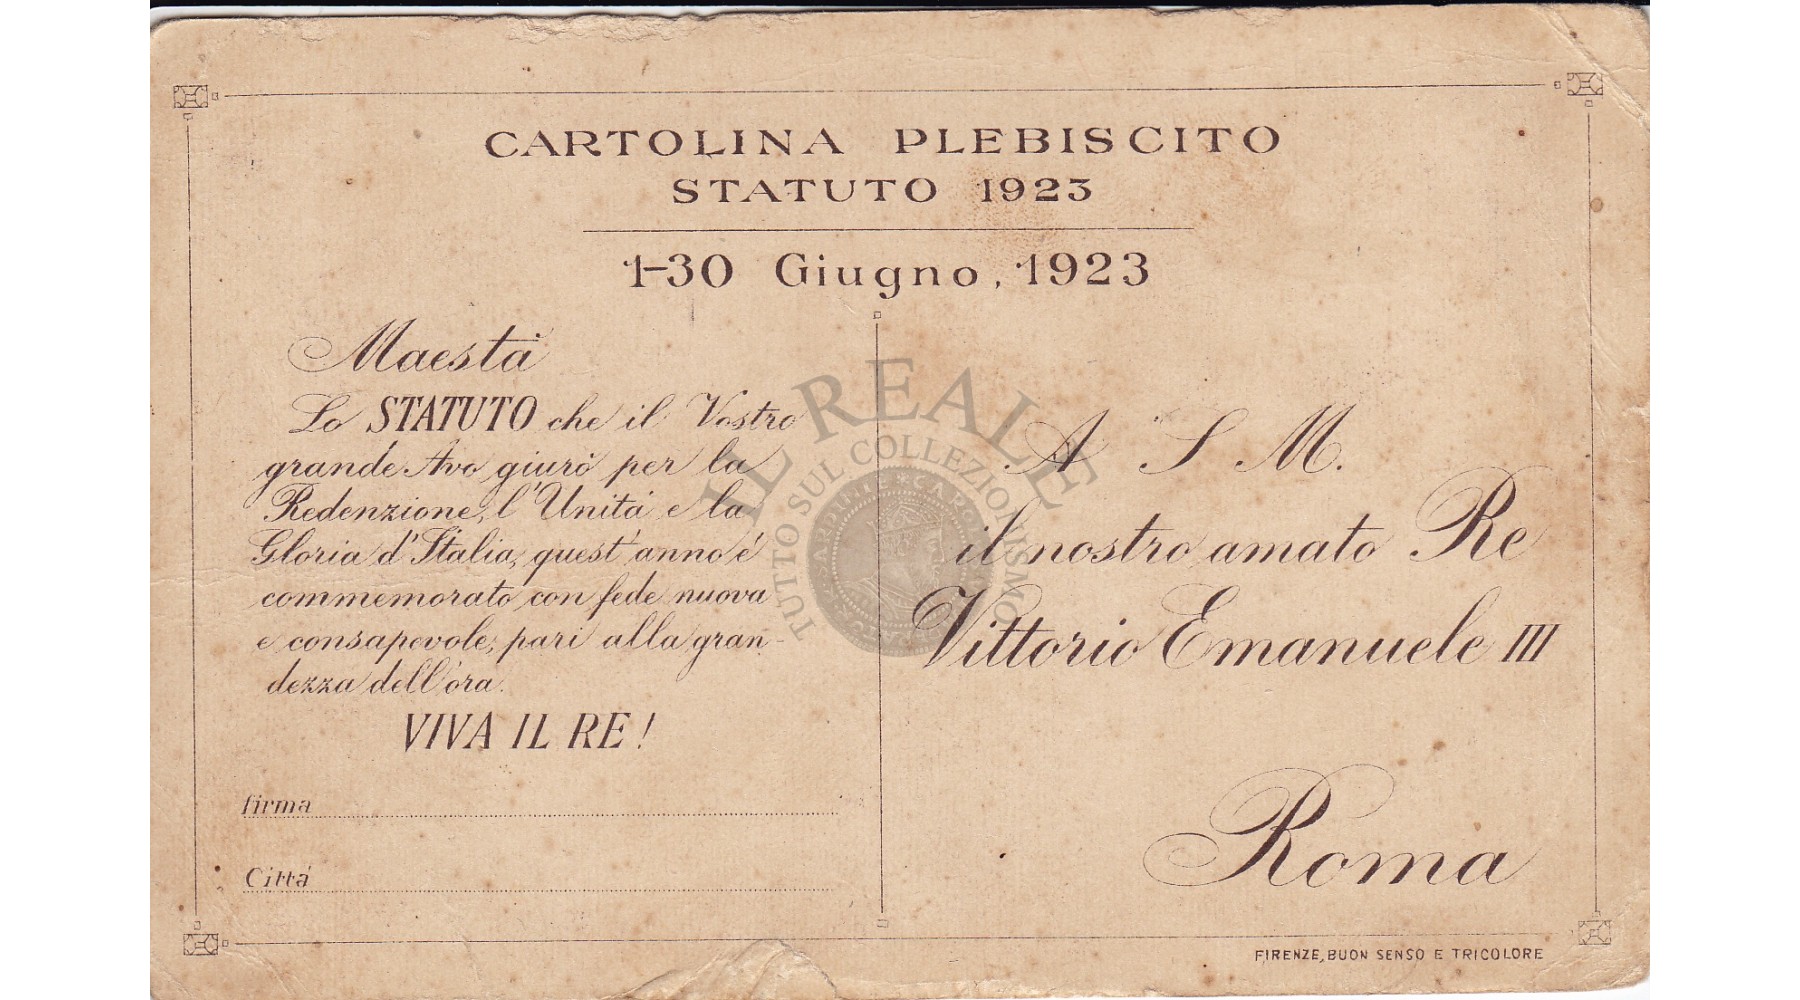 CARTOLINA PLEBISCITO
STATUTO 1923
1-30 Giugno, 1923
Maestá
Lo STATUTO che il Vostro
grande Avo giurò per la
Redenzione, l'Unitá e la
Gloria d'Italia, quest'anno é
commemorato con fede nuova
e consapevole, pari alla gran-
dezza dell'ora.
VIVA IL RE!
firma
Cittá
A S M.
il nostro amato Re
Vittorio Emanuele III
Roma
FIRENZE, BUON SENSO E TRICOLORE
IL REALE
TUTTO SUL COLLEZIONISMO